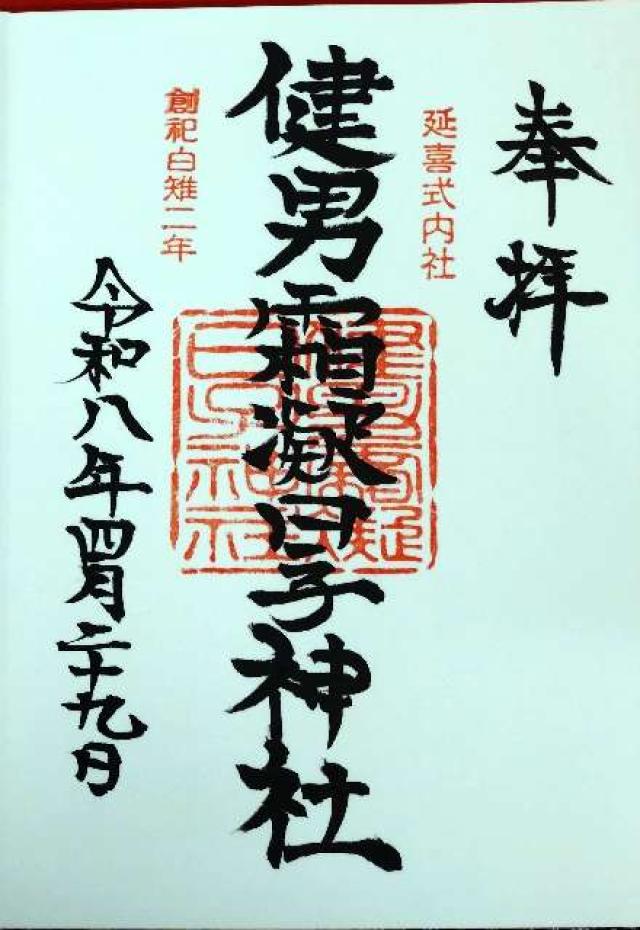 奉拝
延喜式内社
健男霜凝日子神社
創祀白雉二年
令和八年四月二十九日